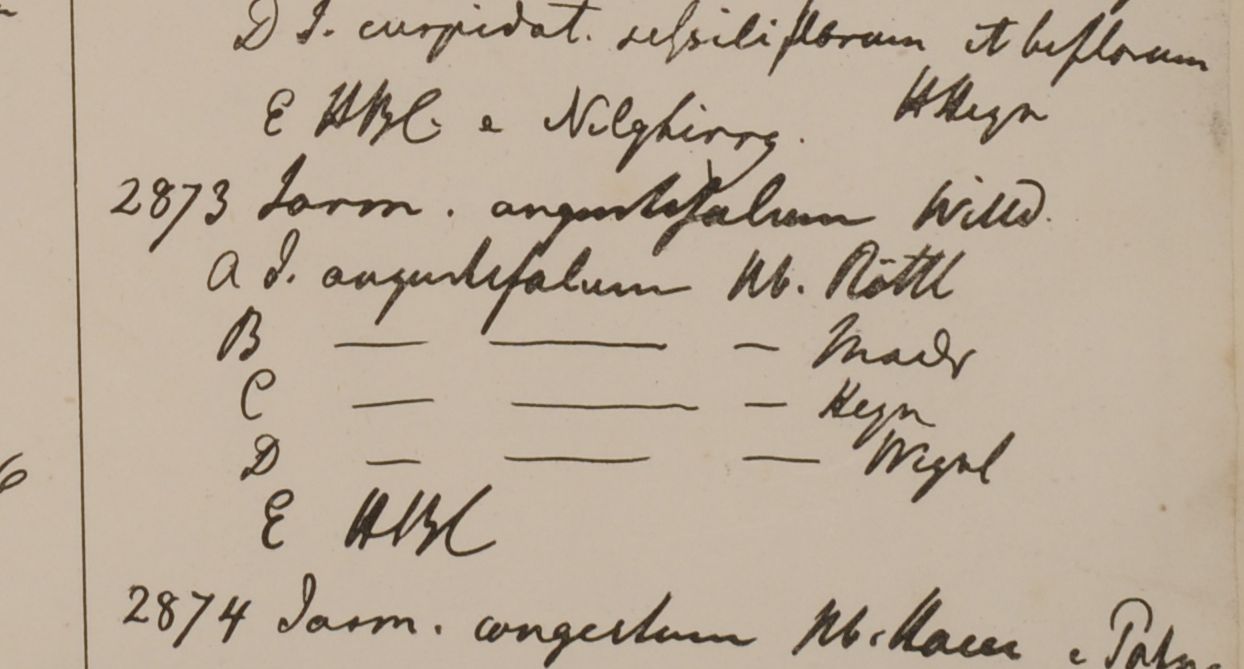 D J. cuspidat. sessiliflorum et biflorum
E HBC. e Nilghirry. HHeyn
2873 Jasm. angustifolium Willd.
a J. angustifolium Hb. Röttl
B — — — Madr
C — — — Heyn
D — — — Wight
E HBC
2874 Jasm. congestum Hb. Ham e